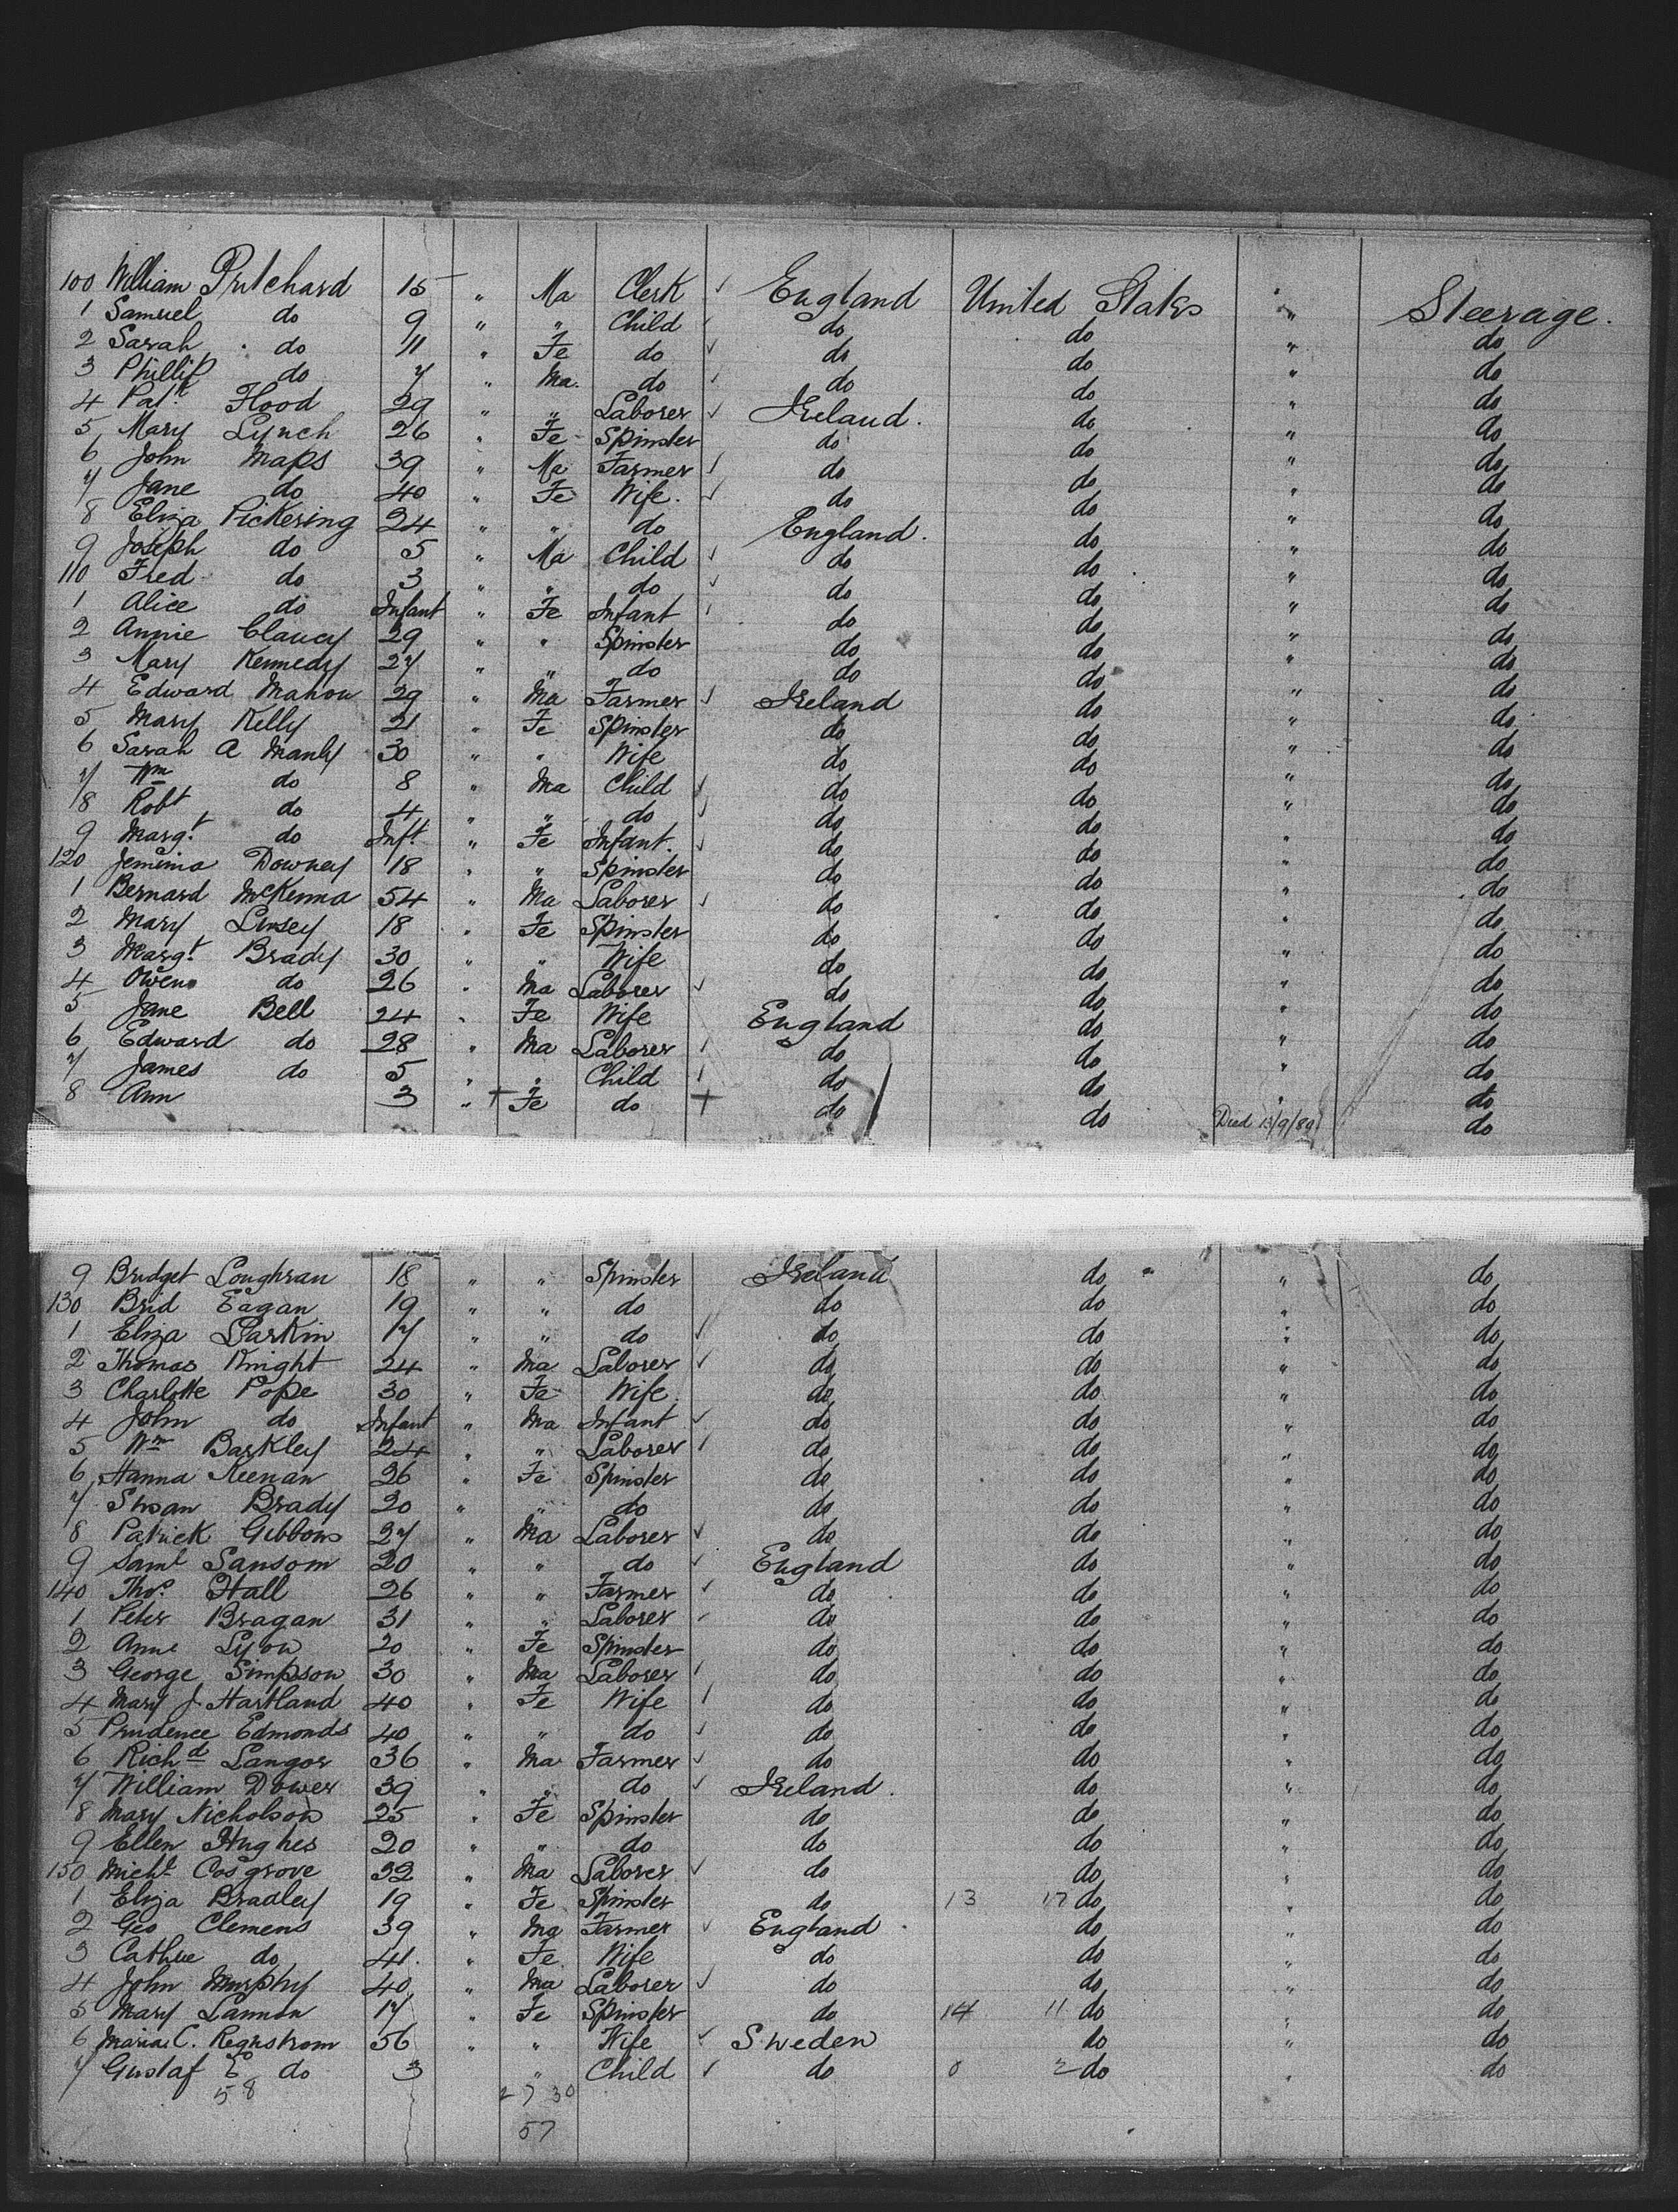 100 William Pritchard 15 " Ma Clerk ✓ England United States " Steerage.
1 Samuel do 9 " " Child ✓ do do " do
2 Sarah do 11 " Fe do ✓ do do " do
3 Phillip do 7 " Ma. do ✓ do do " do
4 Patk Flood 29 " " Laborer ✓ Ireland. do " do
5 Mary Lynch 26 " Fe Spinster do do " do
6 John Maps 39 " Ma Farmer ✓ do do " do
7 Jane do 40 " Fe Wife. ✓ do do " do
8 Eliza Pickering 24 " " do England. do " do
9 Joseph do 5 " Ma Child ✓ do do " do
110 Fred do 3 " " do ✓ do do " do
1 Alice do Infant " Fe Infant ✓ do do " do
2 Annie Clancy 29 " " Spinster do do " do
3 Mary Kennedy 27 " " do do do " do
4 Edward Mahon 29 " Ma Farmer ✓ Ireland do " do
5 Mary Kelly 21 " Fe Spinster do do " do
6 Sarah A Manly 30 " " Wife do do " do
7 Wm do 8 " Ma Child ✓ do do " do
8 Robt do 4 " " do ✓ do do " do
9 Margt do Inft. " Fe Infant. ✓ do do " do
120 Jemima Downey 18 " " Spinster do do " do
1 Bernard McKenna 54 " Ma Laborer ✓ do do " do
2 Mary Linsey 18 " Fe Spinster do do " do
3 Margt Brady 30 " " Wife do do " do
4 Owen do 26 " Ma Laborer ✓ do do " do
5 Jane Bell 24 " Fe Wife England do " do
6 Edward do 28 " Ma Laborer ✓ do do " do
7 James do 5 " " Child ✓ do do " do
8 Ann 3 " + Fe do + do do Died 13/9/89 do
9 Bridget Loughran 18 " " Spinster Ireland do " do
130 Brid Eagan 19 " " do do do " do
1 Eliza Larkin 17 " " do ✓ do do " do
2 Thomas Knight 24 " Ma Laborer ✓ do do " do
3 Charlotte Pope 30 " Fe Wife. do do " do
4 John do Infant " Ma Infant ✓ do do " do
5 Wm Barkley 24 " " Laborer ✓ do do " do
6 Hanna Keenan 26 " Fe Spinster do do " do
7 Susan Brady 20 " " do do do " do
8 Patrick Gibbons 27 " Ma Laborer ✓ do do " do
9 Saml Sansom 20 " " do ✓ England do " do
140 Thos. Hall 26 " " Farmer ✓ do do " do
1 Peter Bragan 31 " " Laborer ✓ do do " do
2 Anne Lyon 20 " Fe Spinster do do " do
3 George Simpson 30 " Ma Laborer ✓ do do " do
4 Mary J. Hartland 40 " Fe Wife ✓ do do " do
5 Prudence Edmonds 40 " " do ✓ do do " do
6 Richd Langor 36 " Ma Farmer ✓ do do " do
7 William Dower 39 " " do ✓ Ireland. do " do
8 Mary Nicholson 25 " Fe Spinster do do " do
9 Ellen Hughes 20 " " do do do " do
150 Michl Cosgrove 32 " Ma Laborer ✓ do do " do
1 Eliza Bradley 19 " Fe Spinster do 13 17 do " do
2 Geo Clemens 39 " Ma Farmer ✓ England do " do
3 Cathne do 41. " Fe Wife do do " do
4 John Murphy 40 " Ma Laborer ✓ do do " do
5 Mary Lannon 17 " Fe Spinster do 14 11 do " do
6 Maria C. Regnstrom 56 " " Wife ✓ Sweden do " do
7 Gustaf E do 3 " Child ✓ do 0 2 do " do
58 27 30
57